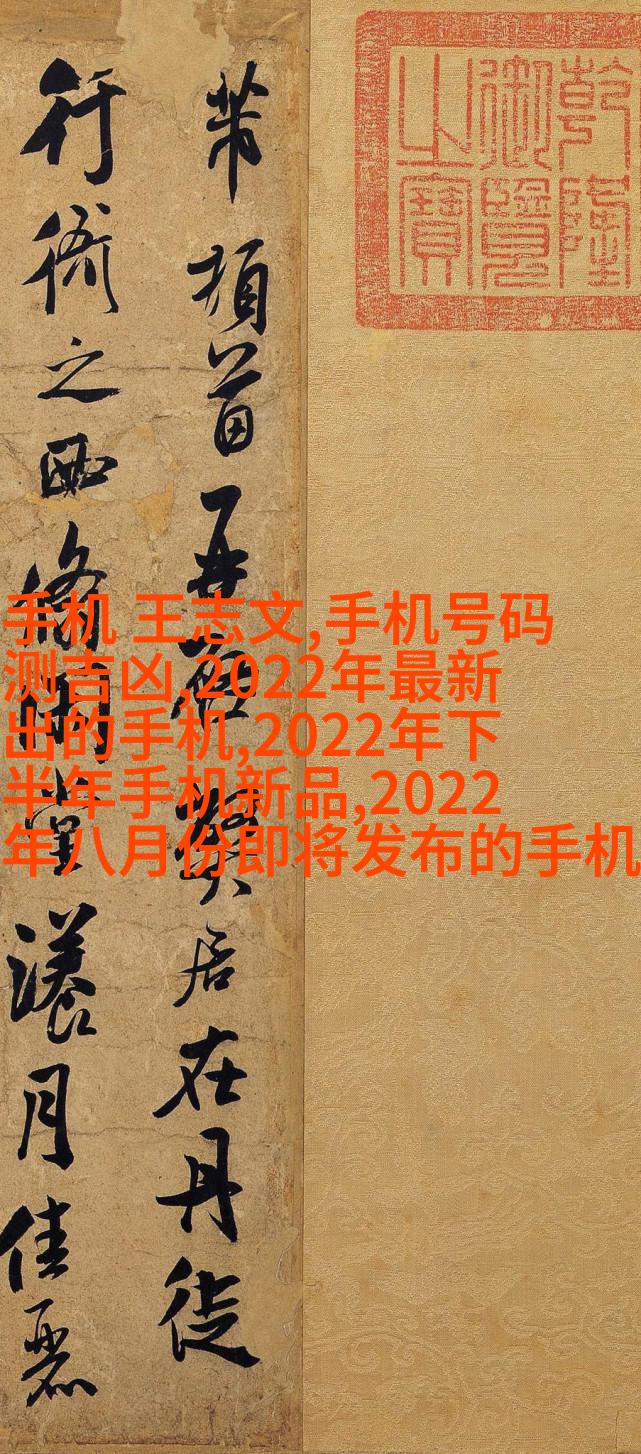 乾隆
御覽
之寶
芾頓首再啟弊居在丹徒
行衙之西翛閒堂漾月佳麗
手机 王志文,手机号码
测吉凶,2022年最新
出的手机,2022年下
半年手机新品,2022
年八月份即将发布的手机